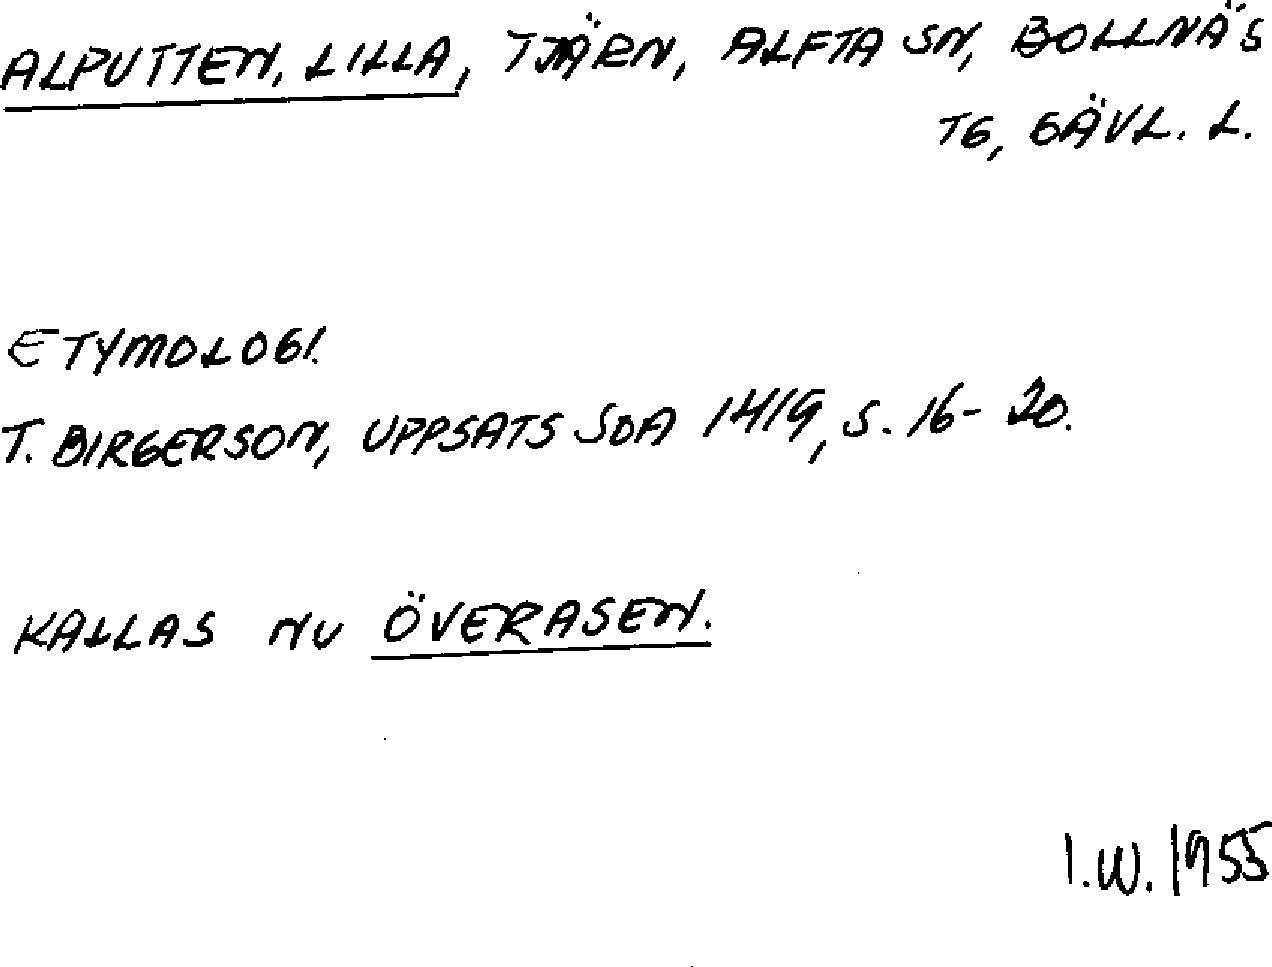 ALPUTTEN, LILLA, TJÄRN, ALFTA SN, BOLLNÄS
TG, GÄVL. L.
ETYMOLOGI.
T. BIRGERSON, UPPSATS SOA 1419, S. 16-20.
KALLAS NU ÖVERASEN.
I.W. 1955